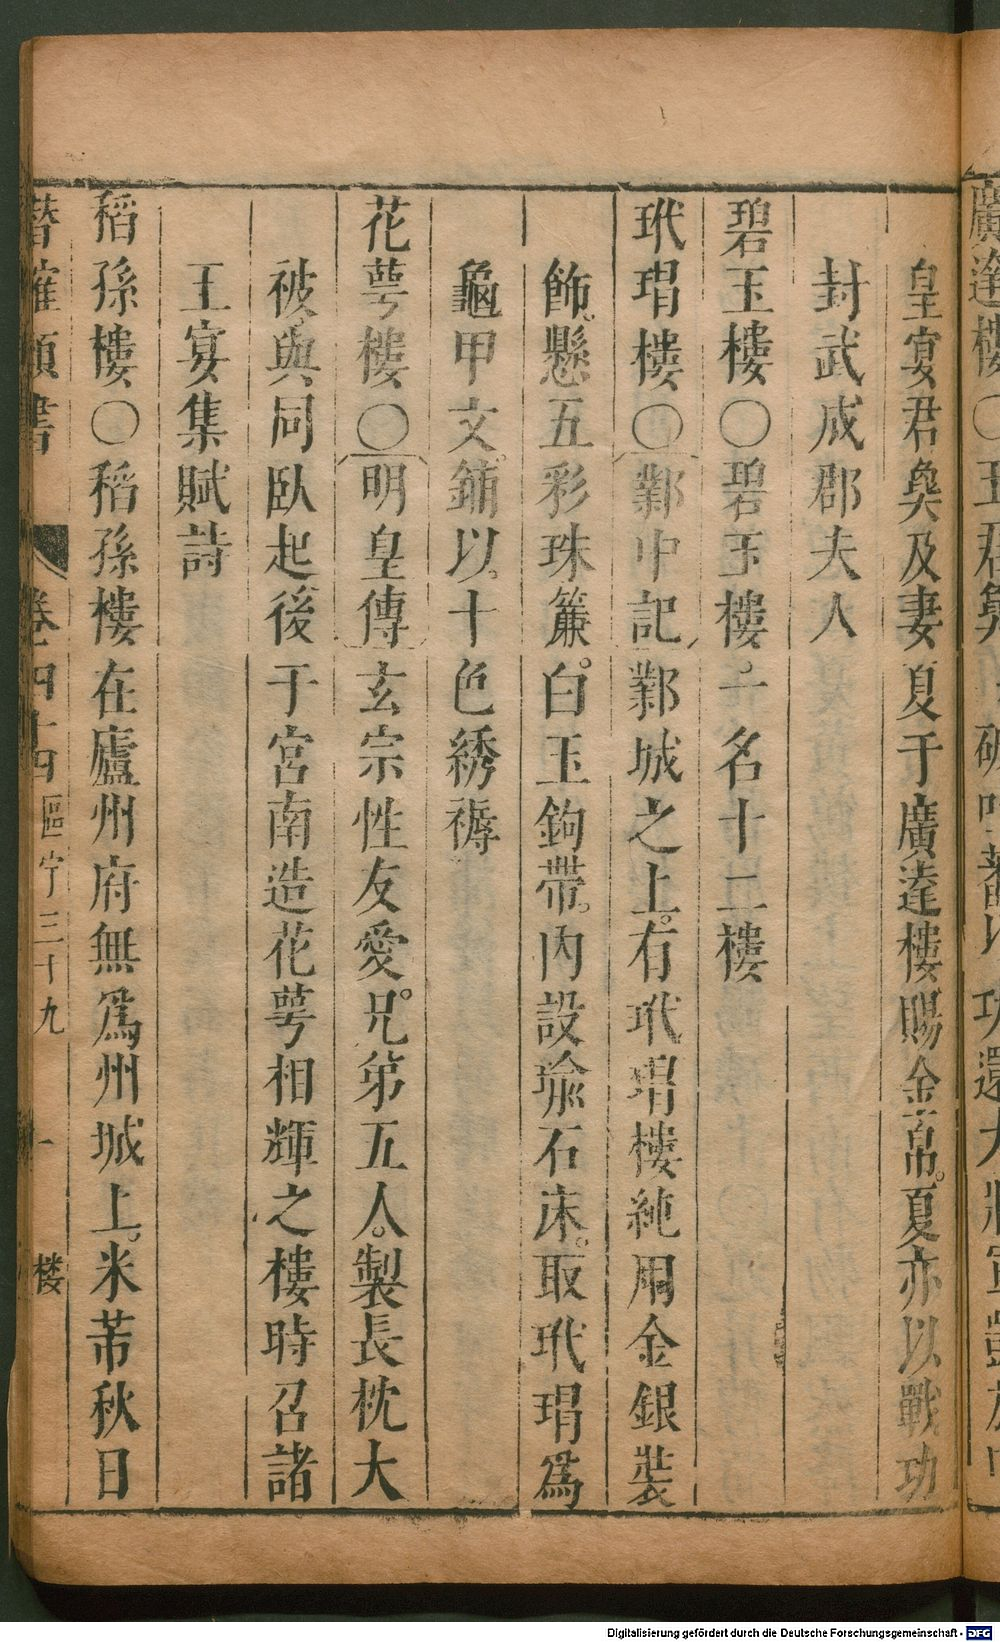 廣達樓〇王君㚟
皇宴君㚟及妻夏于廣達樓賜金帛。夏亦以戰功
封武威郡夫人
碧玉樓〇碧玉樓。一名十二樓
玳瑁樓〇鄴中記鄴城之上。有玳瑁樓純用金銀裝
飾。懸五彩珠簾。白玉鉤帶。內設瑜石床。取玳瑁爲
龜甲文。鋪以。十色綉褥
花萼樓〇明皇傳玄宗性友愛。兄弟五人。製長枕大
被與同臥起後于宮南造花萼相輝之樓時召諸
王宴集賦詩
稻孫樓〇稻孫樓在廬州府無爲州城上。米芾秋日
潛確類書 卷四十四 區宇三十九 一 楼
Digitalisierung gefördert durch die Deutsche Forschungsgemeinschaft - DFG